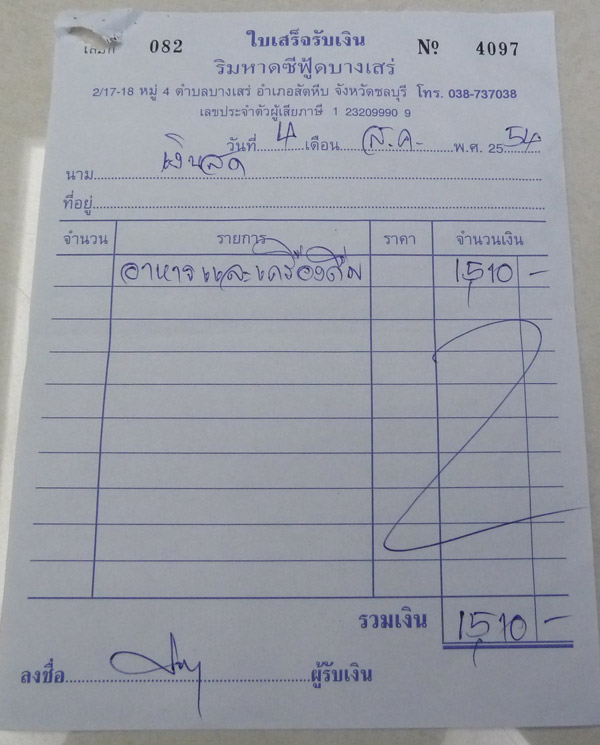 เล่มที่ 082 ใบเสร็จรับเงิน Nº 4097
ริมหาดซีฟู้ดบางเสร่
2/17-18 หมู่ 4 ตำบลบางเสร่ อำเภอสัตหีบ จังหวัดชลบุรี โทร. 038-737038
เลขประจำตัวผู้เสียภาษี 1 23209990 9
วันที่ 4 เดือน ส.ค. พ.ศ. 2554
นาม เงินสด
ที่อยู่
จำนวน รายการ ราคา จำนวนเงิน
อาหารและเครื่องดื่ม 1510 -
รวมเงิน 1510 -
ลงชื่อ ผู้รับเงิน